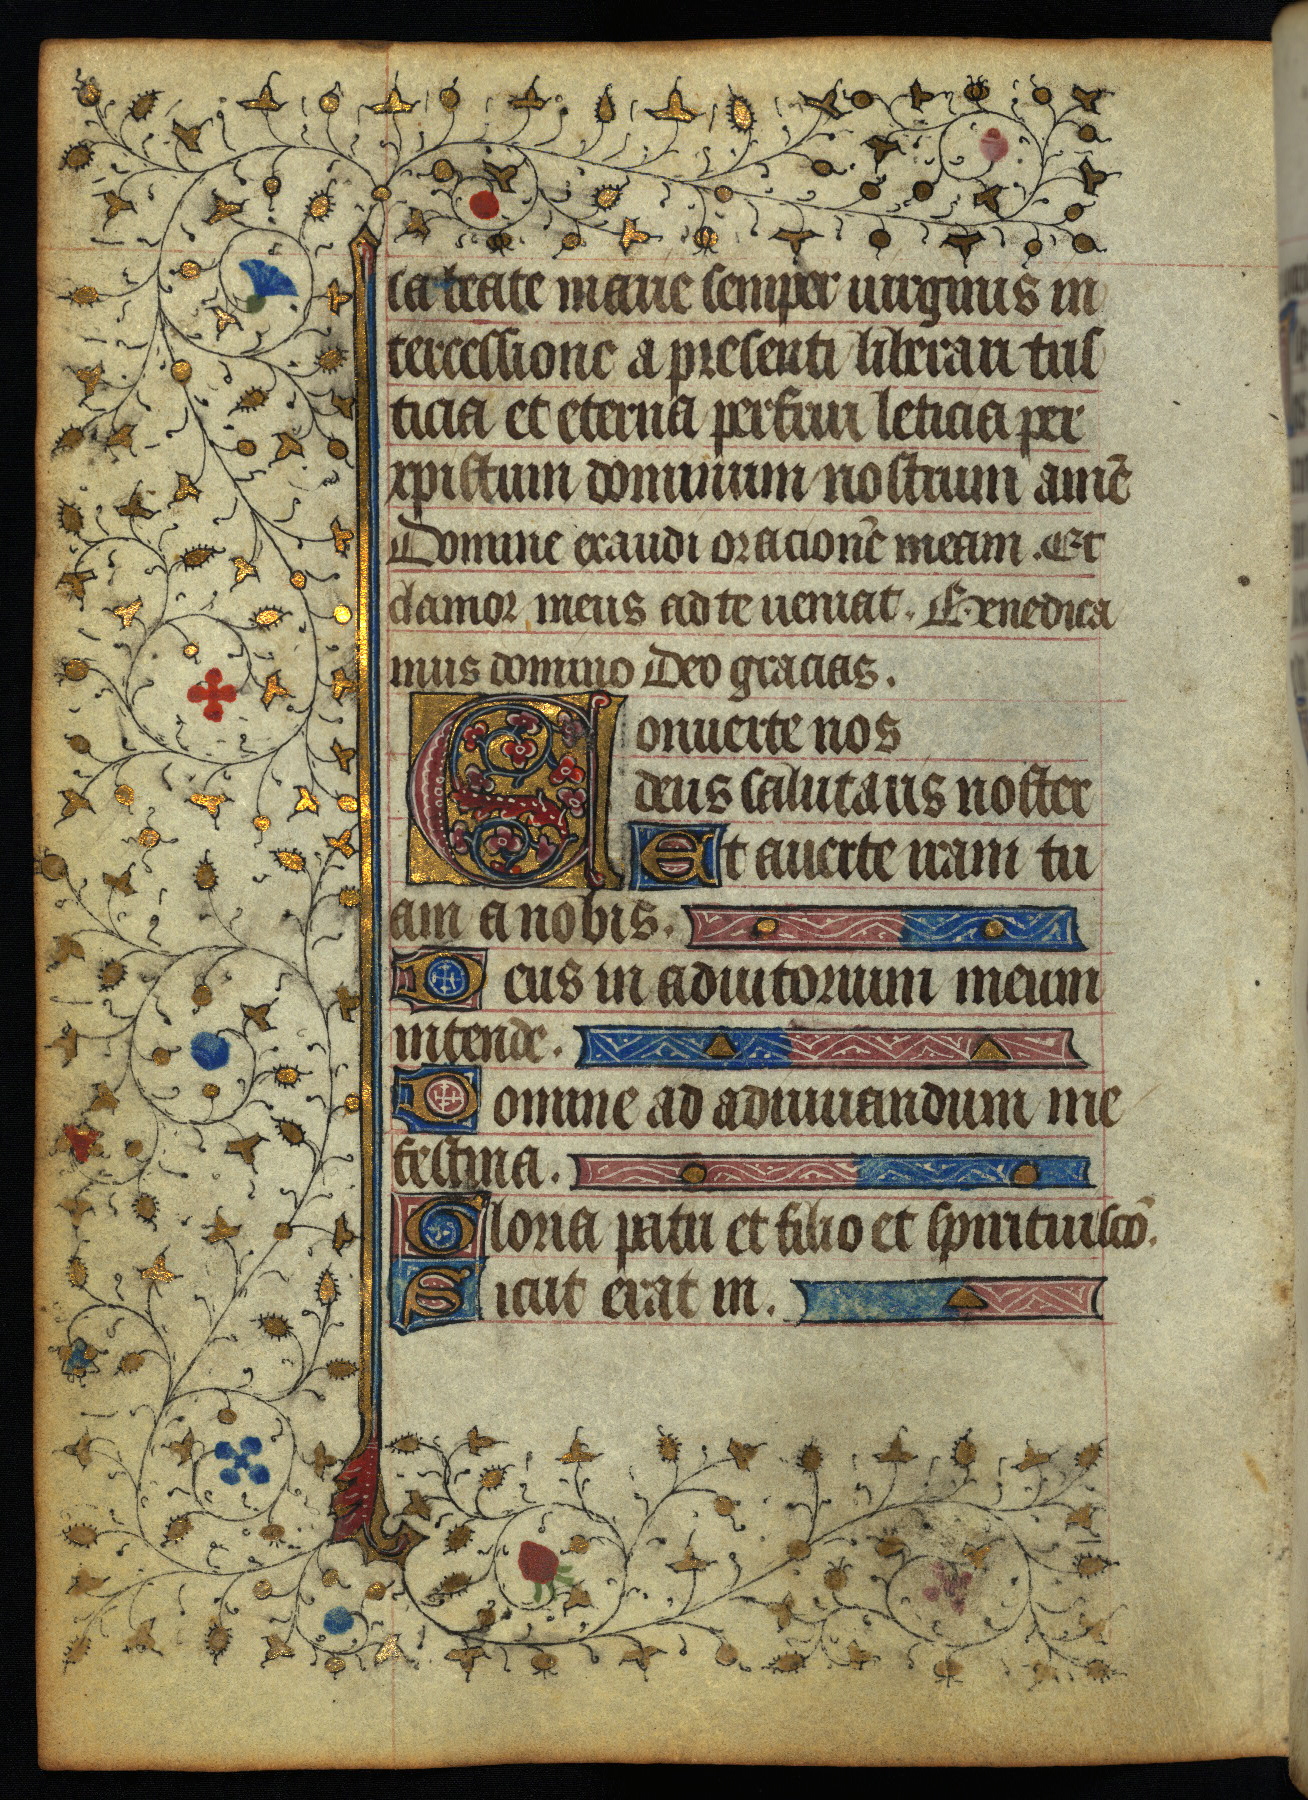 sa beate marie semper uirginis in
tercessione a presenti liberari tris
ticia et eterna perfrui leticia per
xpistum dominum nostrum amē
Domine exaudi oracionē meam . Et
clamor meus ad te ueniat . Benedica
mus domino Deo gracias .
Conuerte nos
deus salutaris noster
Et auerte iram tu
am a nobis .
Deus in adiutorium meum
intende .
Domine ad adiuuandum me
festina .
Gloria patri et filio et spiritui scō .
Sicut erat in .